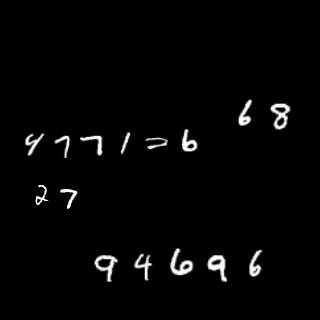 68
4771=6
27
94696